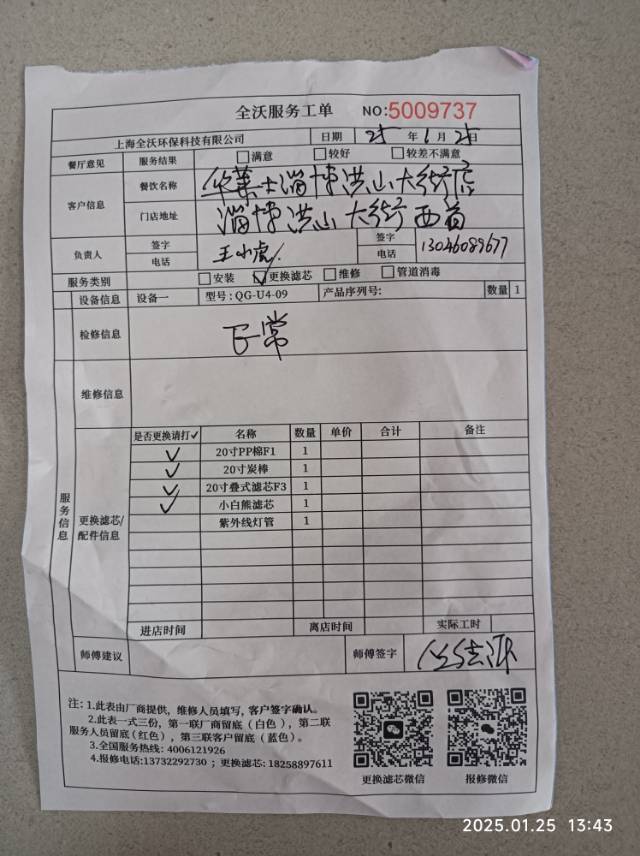 全沃服务工单 NO:5009737
上海全沃环保科技有限公司 日期 25 年 1 月 25
餐厅意见 服务结果 满意 较好 较差不满意
客户信息 餐饮名称 华莱士淄博洪山大街店
门店地址 淄博洪山大街西首
负责人 签字 电话 王小虎 签字 电话 13046089677
服务类别 安装 ✓更换滤芯 维修 管道消毒
设备信息 设备一 型号:QG-U4-09 产品序列号: 数量 1
检修信息 正常
维修信息
服务信息 更换滤芯/配件信息
是否更换请打✓ 名称 数量 单价 合计 备注
✓ 20寸PP棉F1 1
✓ 20寸炭棒 1
✓ 20寸叠式滤芯F3 1
✓ 小白熊滤芯 1
紫外线灯管 1
进店时间 离店时间 实际工时
师傅建议 师傅签字
注: 1.此表由厂商提供, 维修人员填写, 客户签字确认。
2.此表一式三份, 第一联厂商留底 (白色), 第二联
服务人员留底(红色), 第三联客户留底 (蓝色)。
3.全国服务热线: 4006121926
4.报修电话:13732292730 ; 更换滤芯: 18258897611
更换滤芯微信 报修微信
2025.01.25 13:43